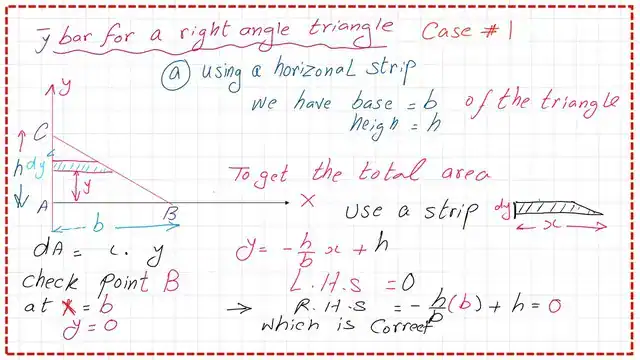 ȳ bar for a right angle triangle Case #1
ⓐ using a horizonal strip
we have base = b of the triangle
heigh = h
y
C
h dy
y
A
B
x
b
To get the total area
use a strip dy
x
dA = x . y
y = -h/b x + h
check point B
L.H.S = 0
at x = b
→ R.H.S = -h/b (b) + h = 0
y = 0
which is Correct